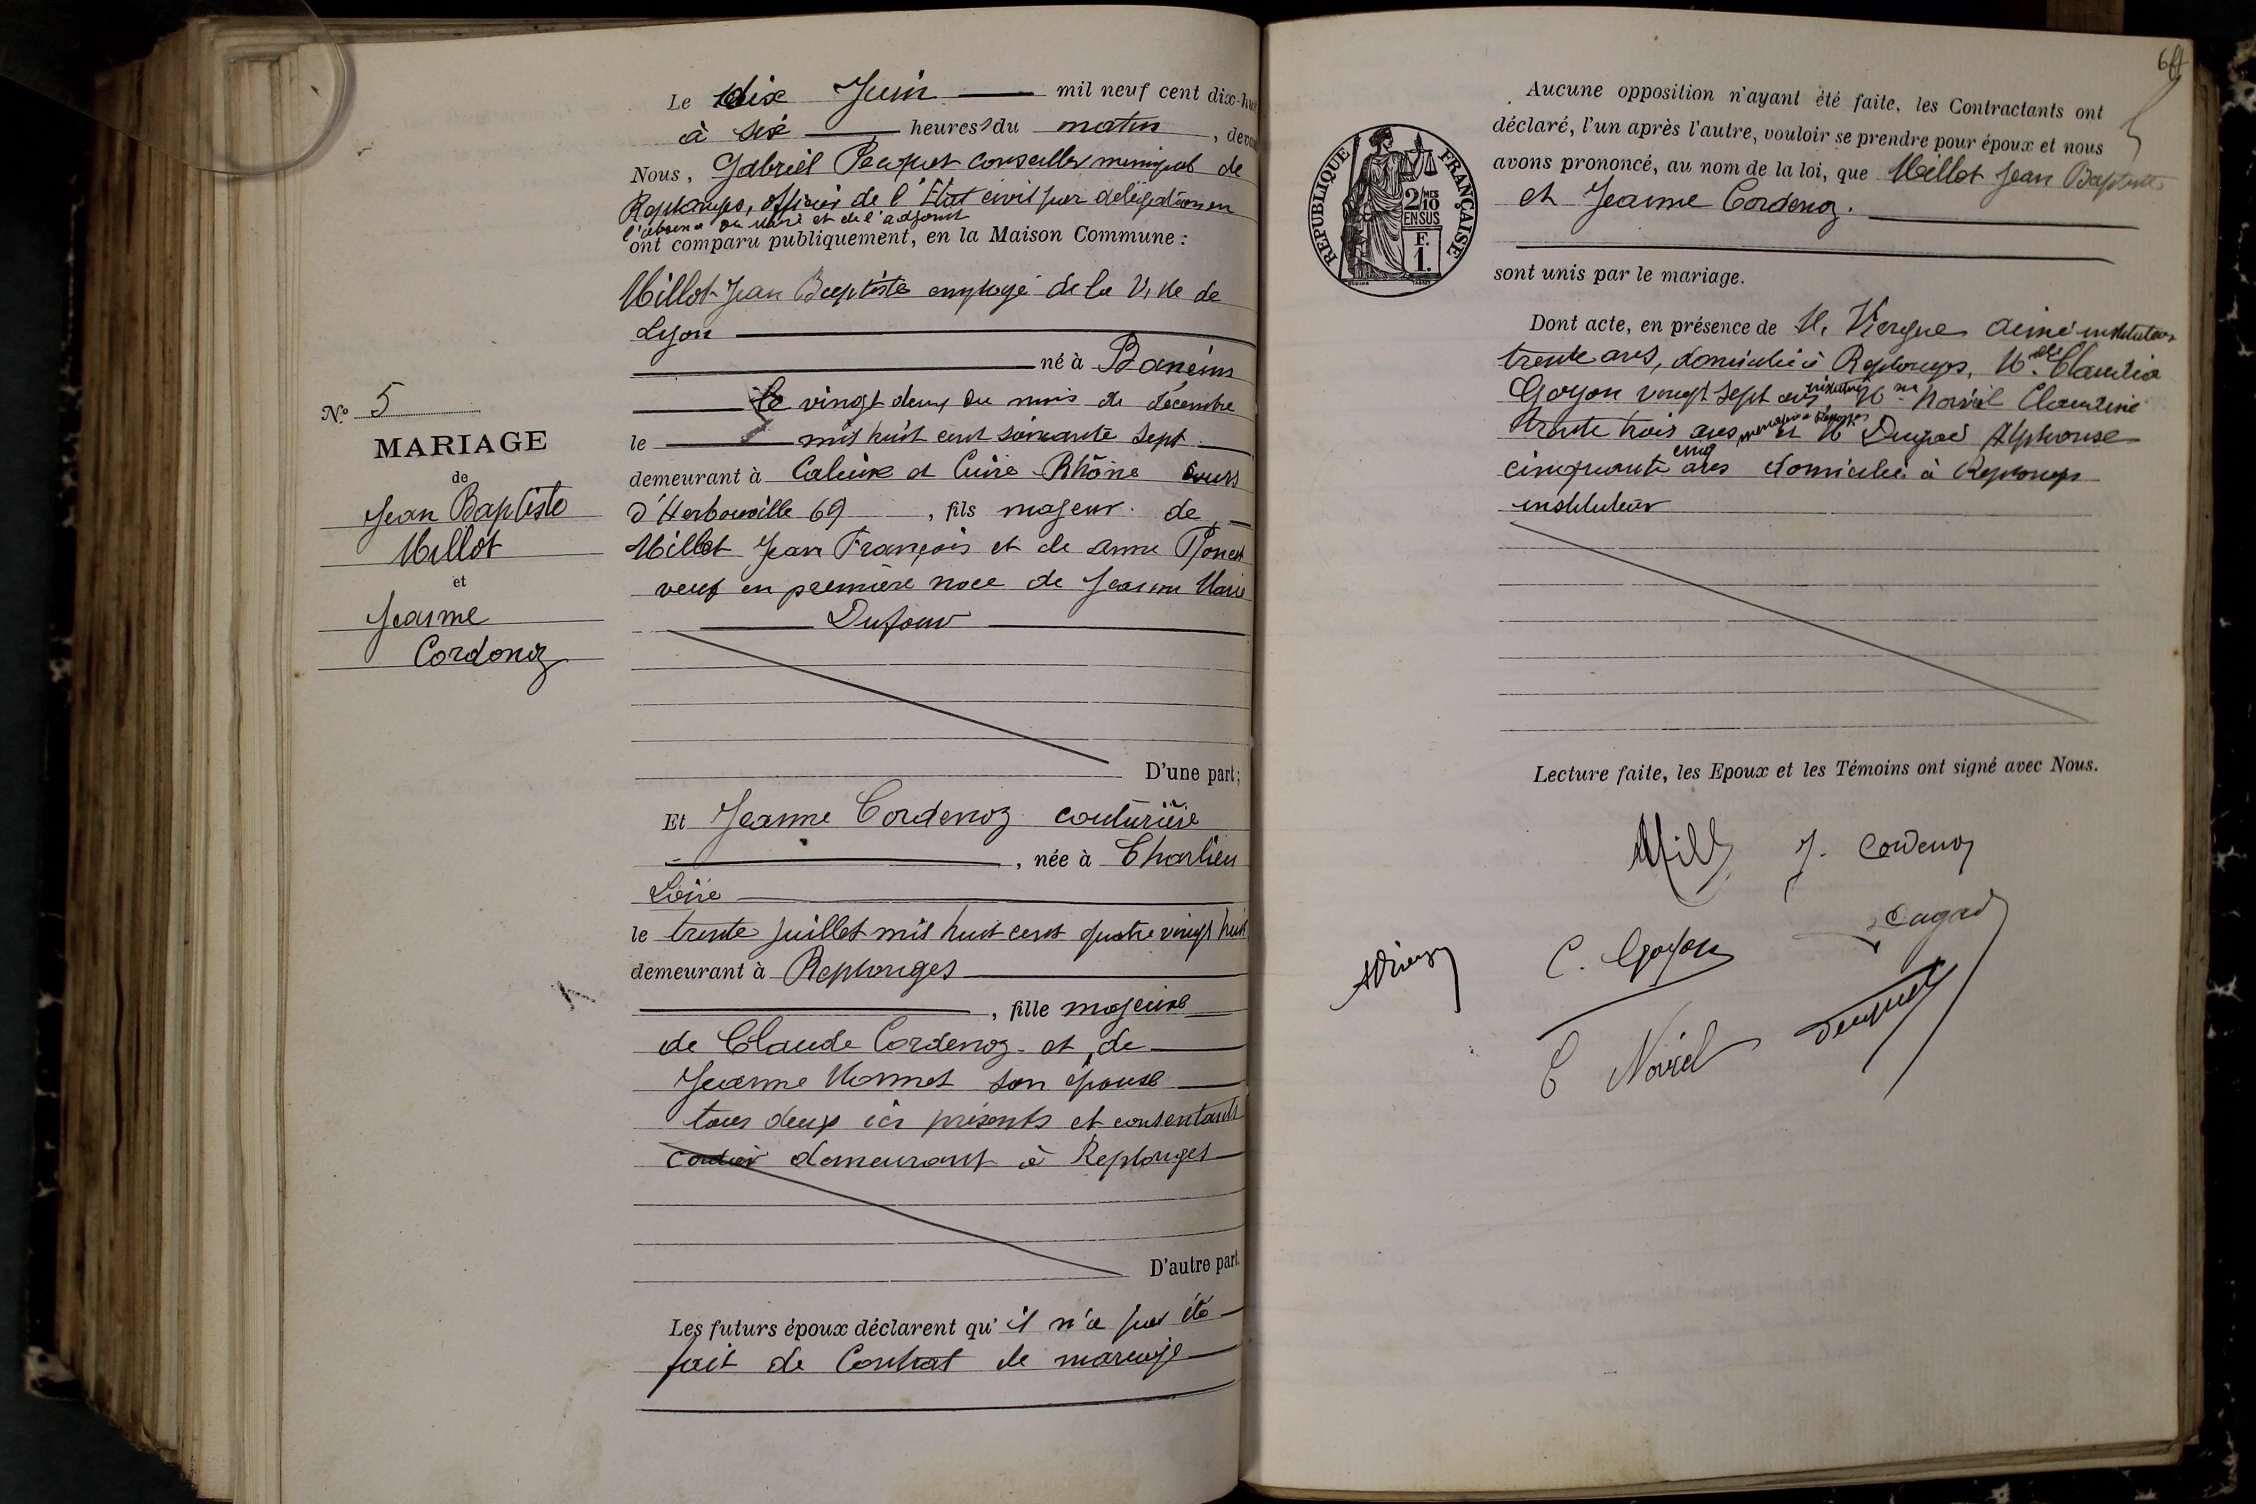 Le dix Juin mil neuf cent dix-huit
à six heures du matin, devant
Nous, Gabriel Pauquet conseiller municipal de
Replonges, officier de l'Etat civil par délégation en
l'absence du Maire et de l'adjoint
ont comparu publiquement, en la Maison Commune :
Millot Jean Baptiste employé de la Ville de
Lyon
né à Baneins
le vingt deux du mois de décembre
le mil huit cent soixante sept
demeurant à Caluire et Cuire Rhône cours
d'Herbouville 69, fils majeur de
Millot Jean François et de Anne
veuf en première noce de Jeanne Marie
Dufour
D'une part;
N° 5
MARIAGE
de
Jean Baptiste
Millot
et
Jeanne
Cordenoz
Et Jeanne Cordenoz couturière
, née à Charlieu
Loire
le trente juillet mil huit cent quatre vingt huit
demeurant à Replonges
, fille majeure
de Claude Cordenoz et de
Jeanne Monnet son épouse
tous deux ici présents et consentants
demeurant à Replonges
D'autre part.
Les futurs époux déclarent qu'il n'a pas été
fait de Contrat de mariage
64
Aucune opposition n'ayant été faite, les Contractants ont
déclaré, l'un après l'autre, vouloir se prendre pour époux et nous
avons prononcé, au nom de la loi, que Millot Jean Baptiste
et Jeanne Cordenoz.
sont unis par le mariage.
RÉPUBLIQUE FRANÇAISE
2/10 MES
EN SUS
F.
1.
Dont acte, en présence de M. Viergne Aimé instituteur
trente ans, domicilié à Replonges, Melle Claudia
Goyon vingt sept ans Mme Noviel Claudine
trente trois ans, et M Dugad Alphonse
cinquante cinq ans domicilié à Replonges
instituteur
Lecture faite, les Epoux et les Témoins ont signé avec Nous.
Mill J. Cordenoz
C. Goyon
C Noviel